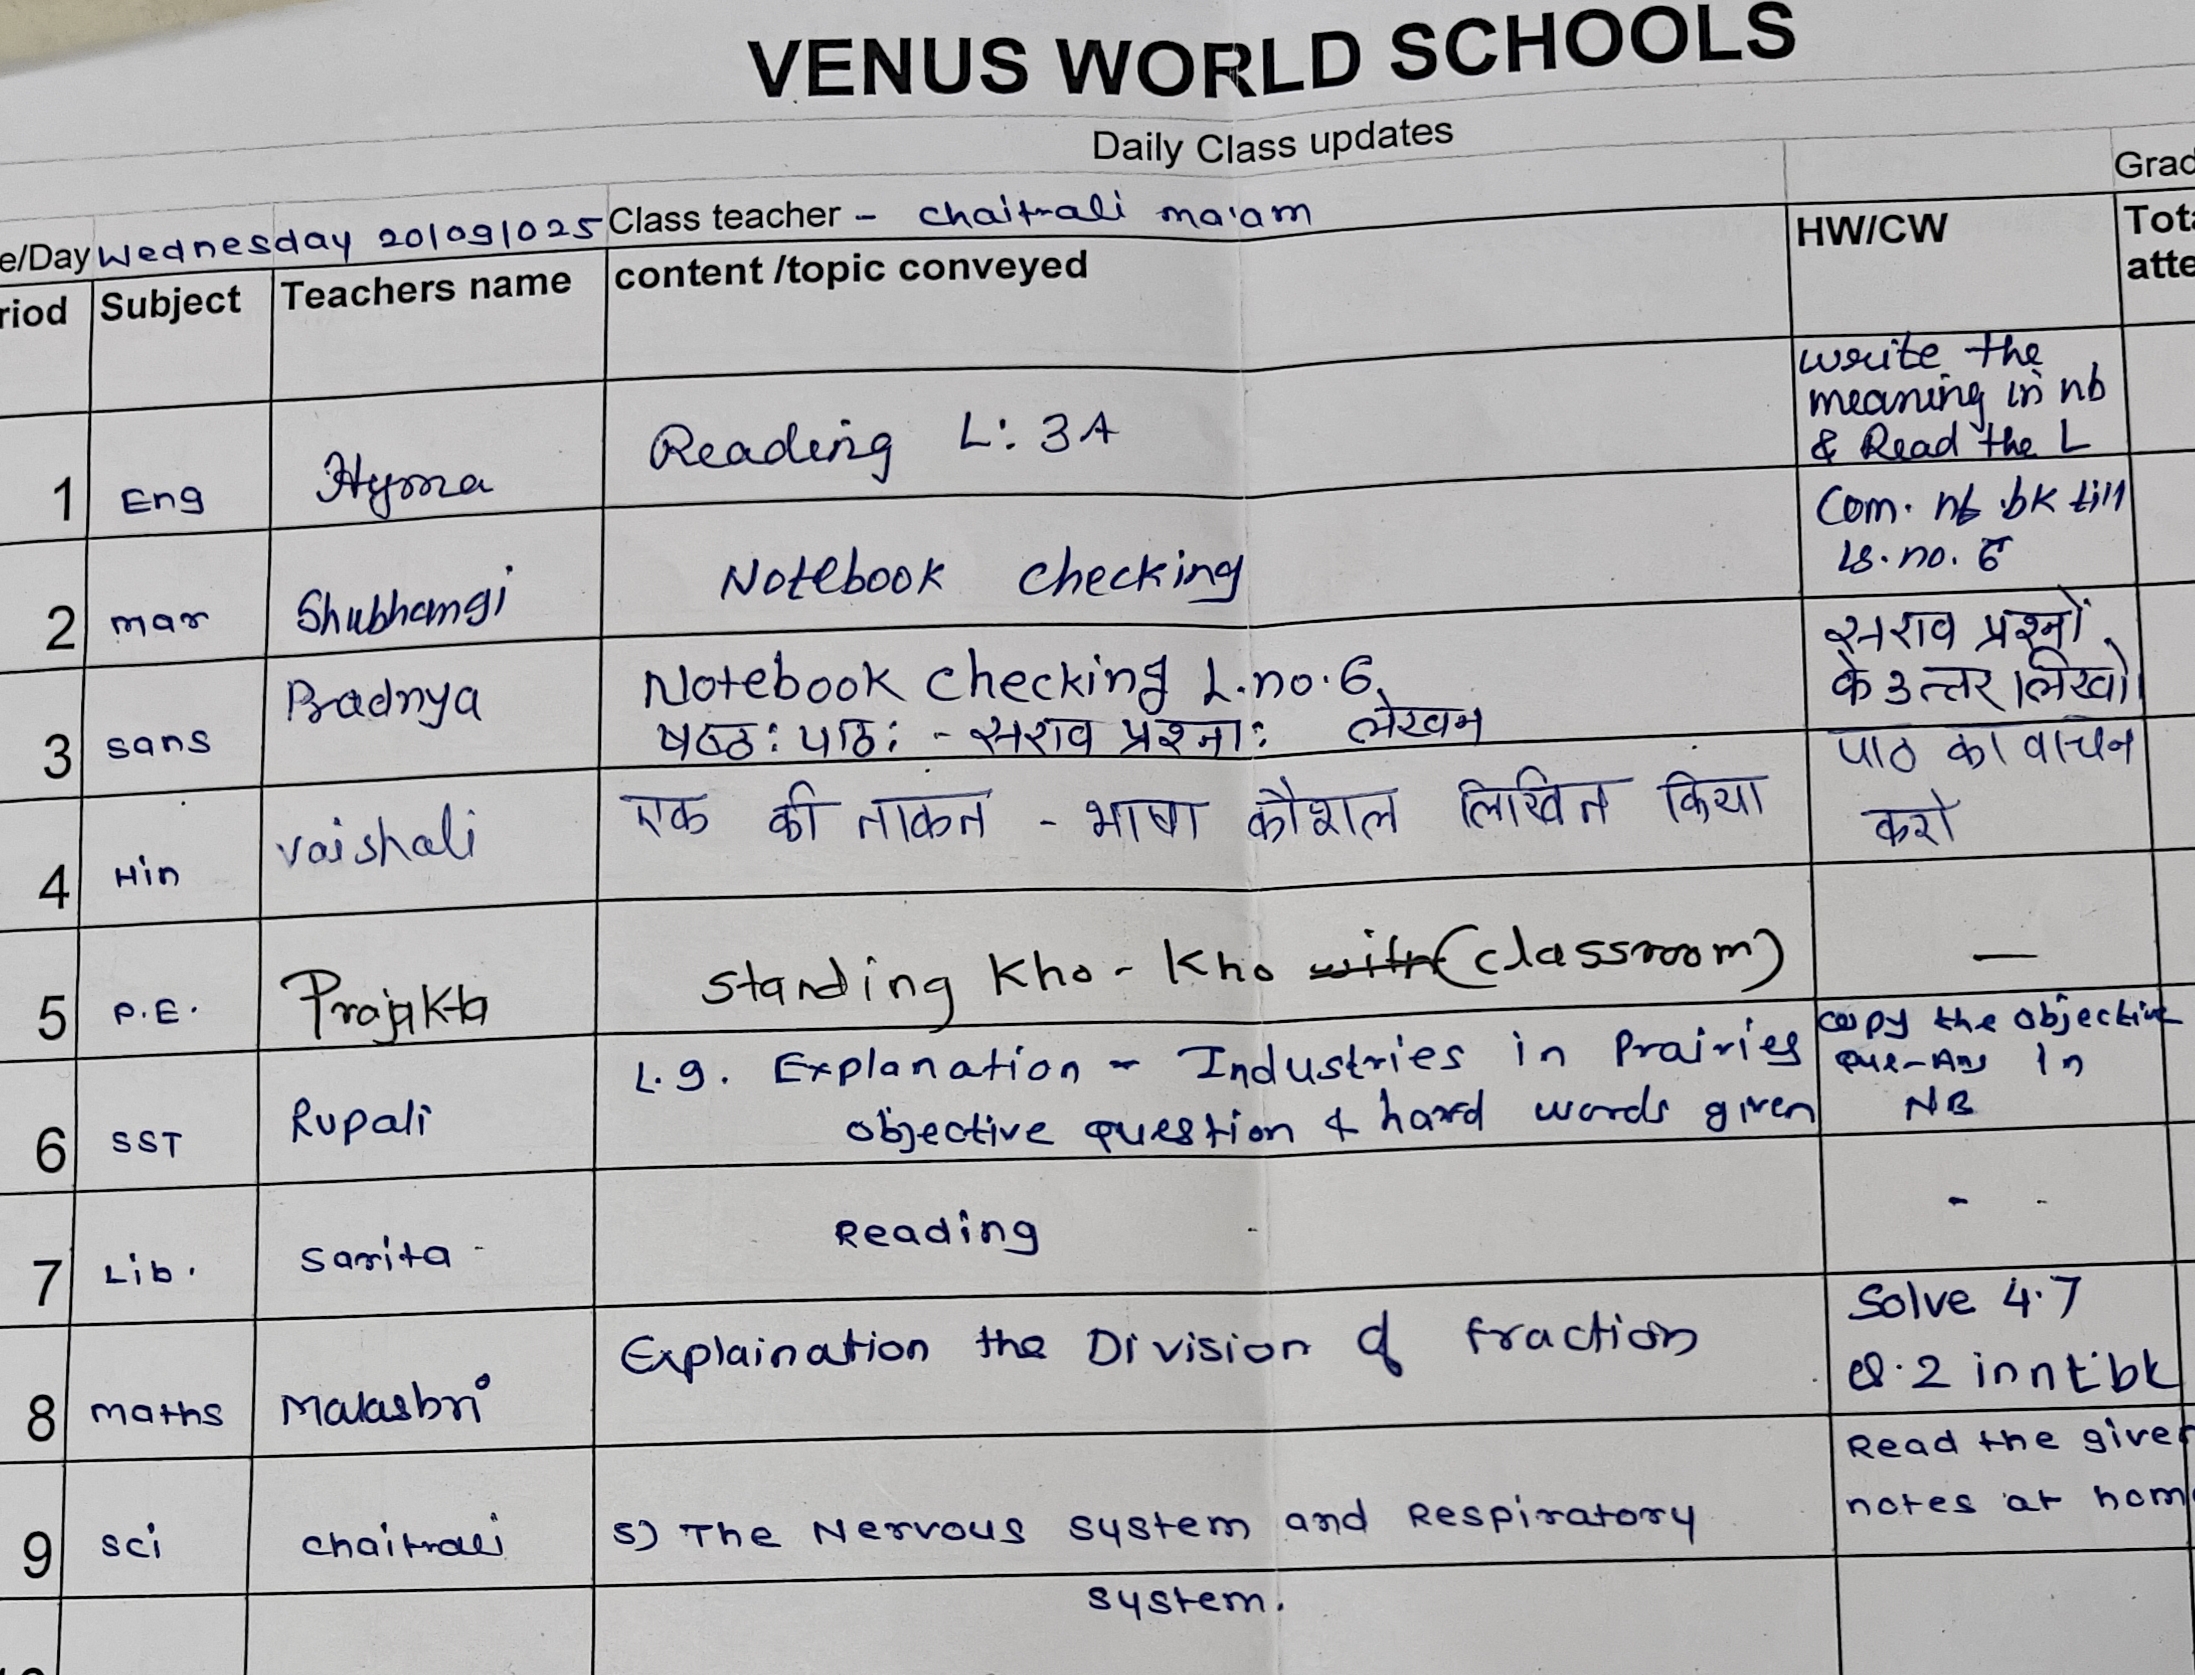 VENUS WORLD SCHOOLS
Daily Class updates
Grad
e/Day Wednesday 20/09/025 Class teacher - chaitrali ma'am
riod Subject Teachers name content /topic conveyed HW/CW Tota
atte
1 Eng Hyma Reading L: 3A write the
meaning in nb
& Read the L
2 mar Shubhamgi Notebook checking Com. nb bk till
ls. no. 6
3 sans Pradnya Notebook checking L.no.6. सराव प्रश्नों
षष्ठ: पाठ: - सराव प्रश्ना: लेखन के उत्तर लिखो
4 Hin vaishali एक की ताकत - भाषा कौशल लिखित किया पाठ का वाचन
करो
5 P.E. Prajakta standing Kho-Kho (classroom) —
6 SST Rupali L.9. Explanation - Industries in Prairies copy the objective
objective question & hard words given que-Ans In
NB
7 Lib. Sarita - Reading -
8 maths Malashri Explaination the Division of fraction Solve 4.7
Q.2 in nt bk
9 sci chaitrali 5) The Nervous system and Respiratory Read the given
system. notes at hom